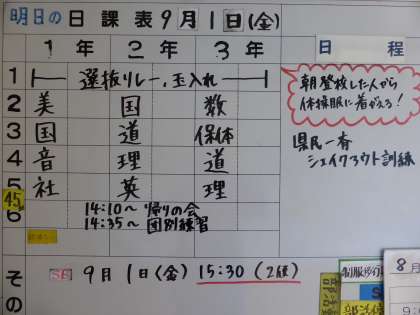 明日の日課表 9月1日(金)
1年 2年 3年 日程
1 選抜リレー、玉入れ
2 美 国 数
3 国 道 保体
4 音 理 道
5 社 英 理
45
6 14:10～ 帰りの会
14:35～ 団別練習
朝登校した人から
体操服に着がえる!
県民一斉
シェイクアウト訓練
その
SB 9月1日(金) 15:30 (2便)
8月